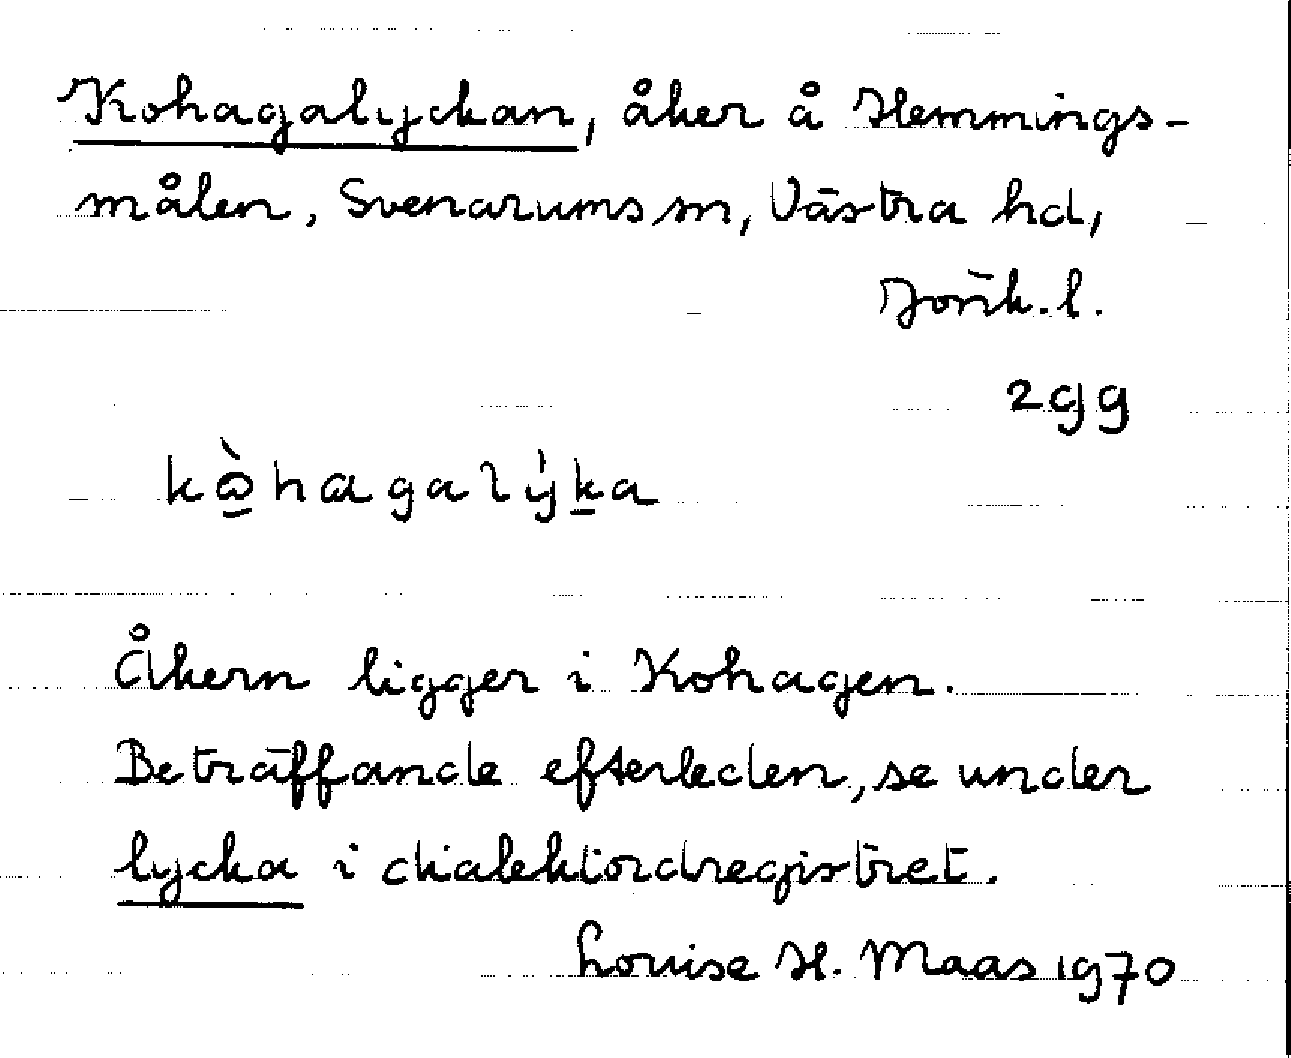 Kohagalyckan, åker å Hemmings-
målen, Svenarums sn, Västra hd,
Jönk. l.
2gg
kὼ̱hagalý̇ḵa
Åkern ligger i Kohagen.
Beträffande efterleden, se under
lycka i dialektordregistret.
Louise H. Maas 1970